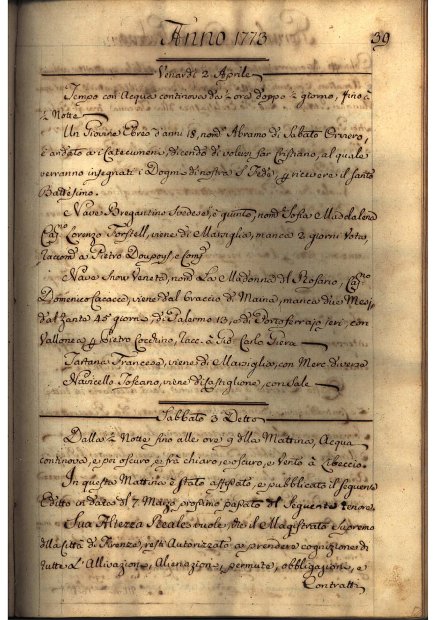 Anno 1773 39
Venardi 2 Aprile
Tempo con Acqua continova da ½ ora doppo ½ giorno, fino à
½ Notte
Un Giovine Ebreo d'anni 18, nomº Abramo di Sabato
è andato a i Catecumeni, dicendo di volersi far Cristiano, al quale
verranno insegnati i Dogmi di nostra S. Fede, p ricevere il Santo
Battesimo.
Nave Bregantino Svedese, è quinto, nomº Sofia Maddalena
Capno Lorenzo viene di Marsiglia, manca 2 giorni
Raccomº a Pietro e Compi
Nave Snow Veneta, nomº La Madonna del Rosario, Capno
Domenico viene dal Braccio di Maina, manca due Mesi,
dal Zante 45 giorni, di Palermo 13, e di Portoferrajo jeri, con
Vallonea p Pietro Race. a Gio: Carlo
Tartana Francese, viene di Marsiglia, con Merc diverse
Navicello Toscano, viene di Castiglione, con Sale
Sabbato 3 Detto
Dalla ½ Notte fino alle ore 9 della Mattina, Acqua
continova, e poi oscuro, e frà chiaro, e oscuro, e Vento à Libeccio.
In questa Mattina è stato affissato, e pubblicato il seguente
Editto in data del 7. Marzo prossimo passato del Seguente tenore
Sua Altezza Reale vuole, che il Magistrato Supremo
della Città di Firenze, resti Autorizzato a prendere cognizione di
tutte l'Allivazioni, Alienazioni, permute, obbligazioni, e
Contratti